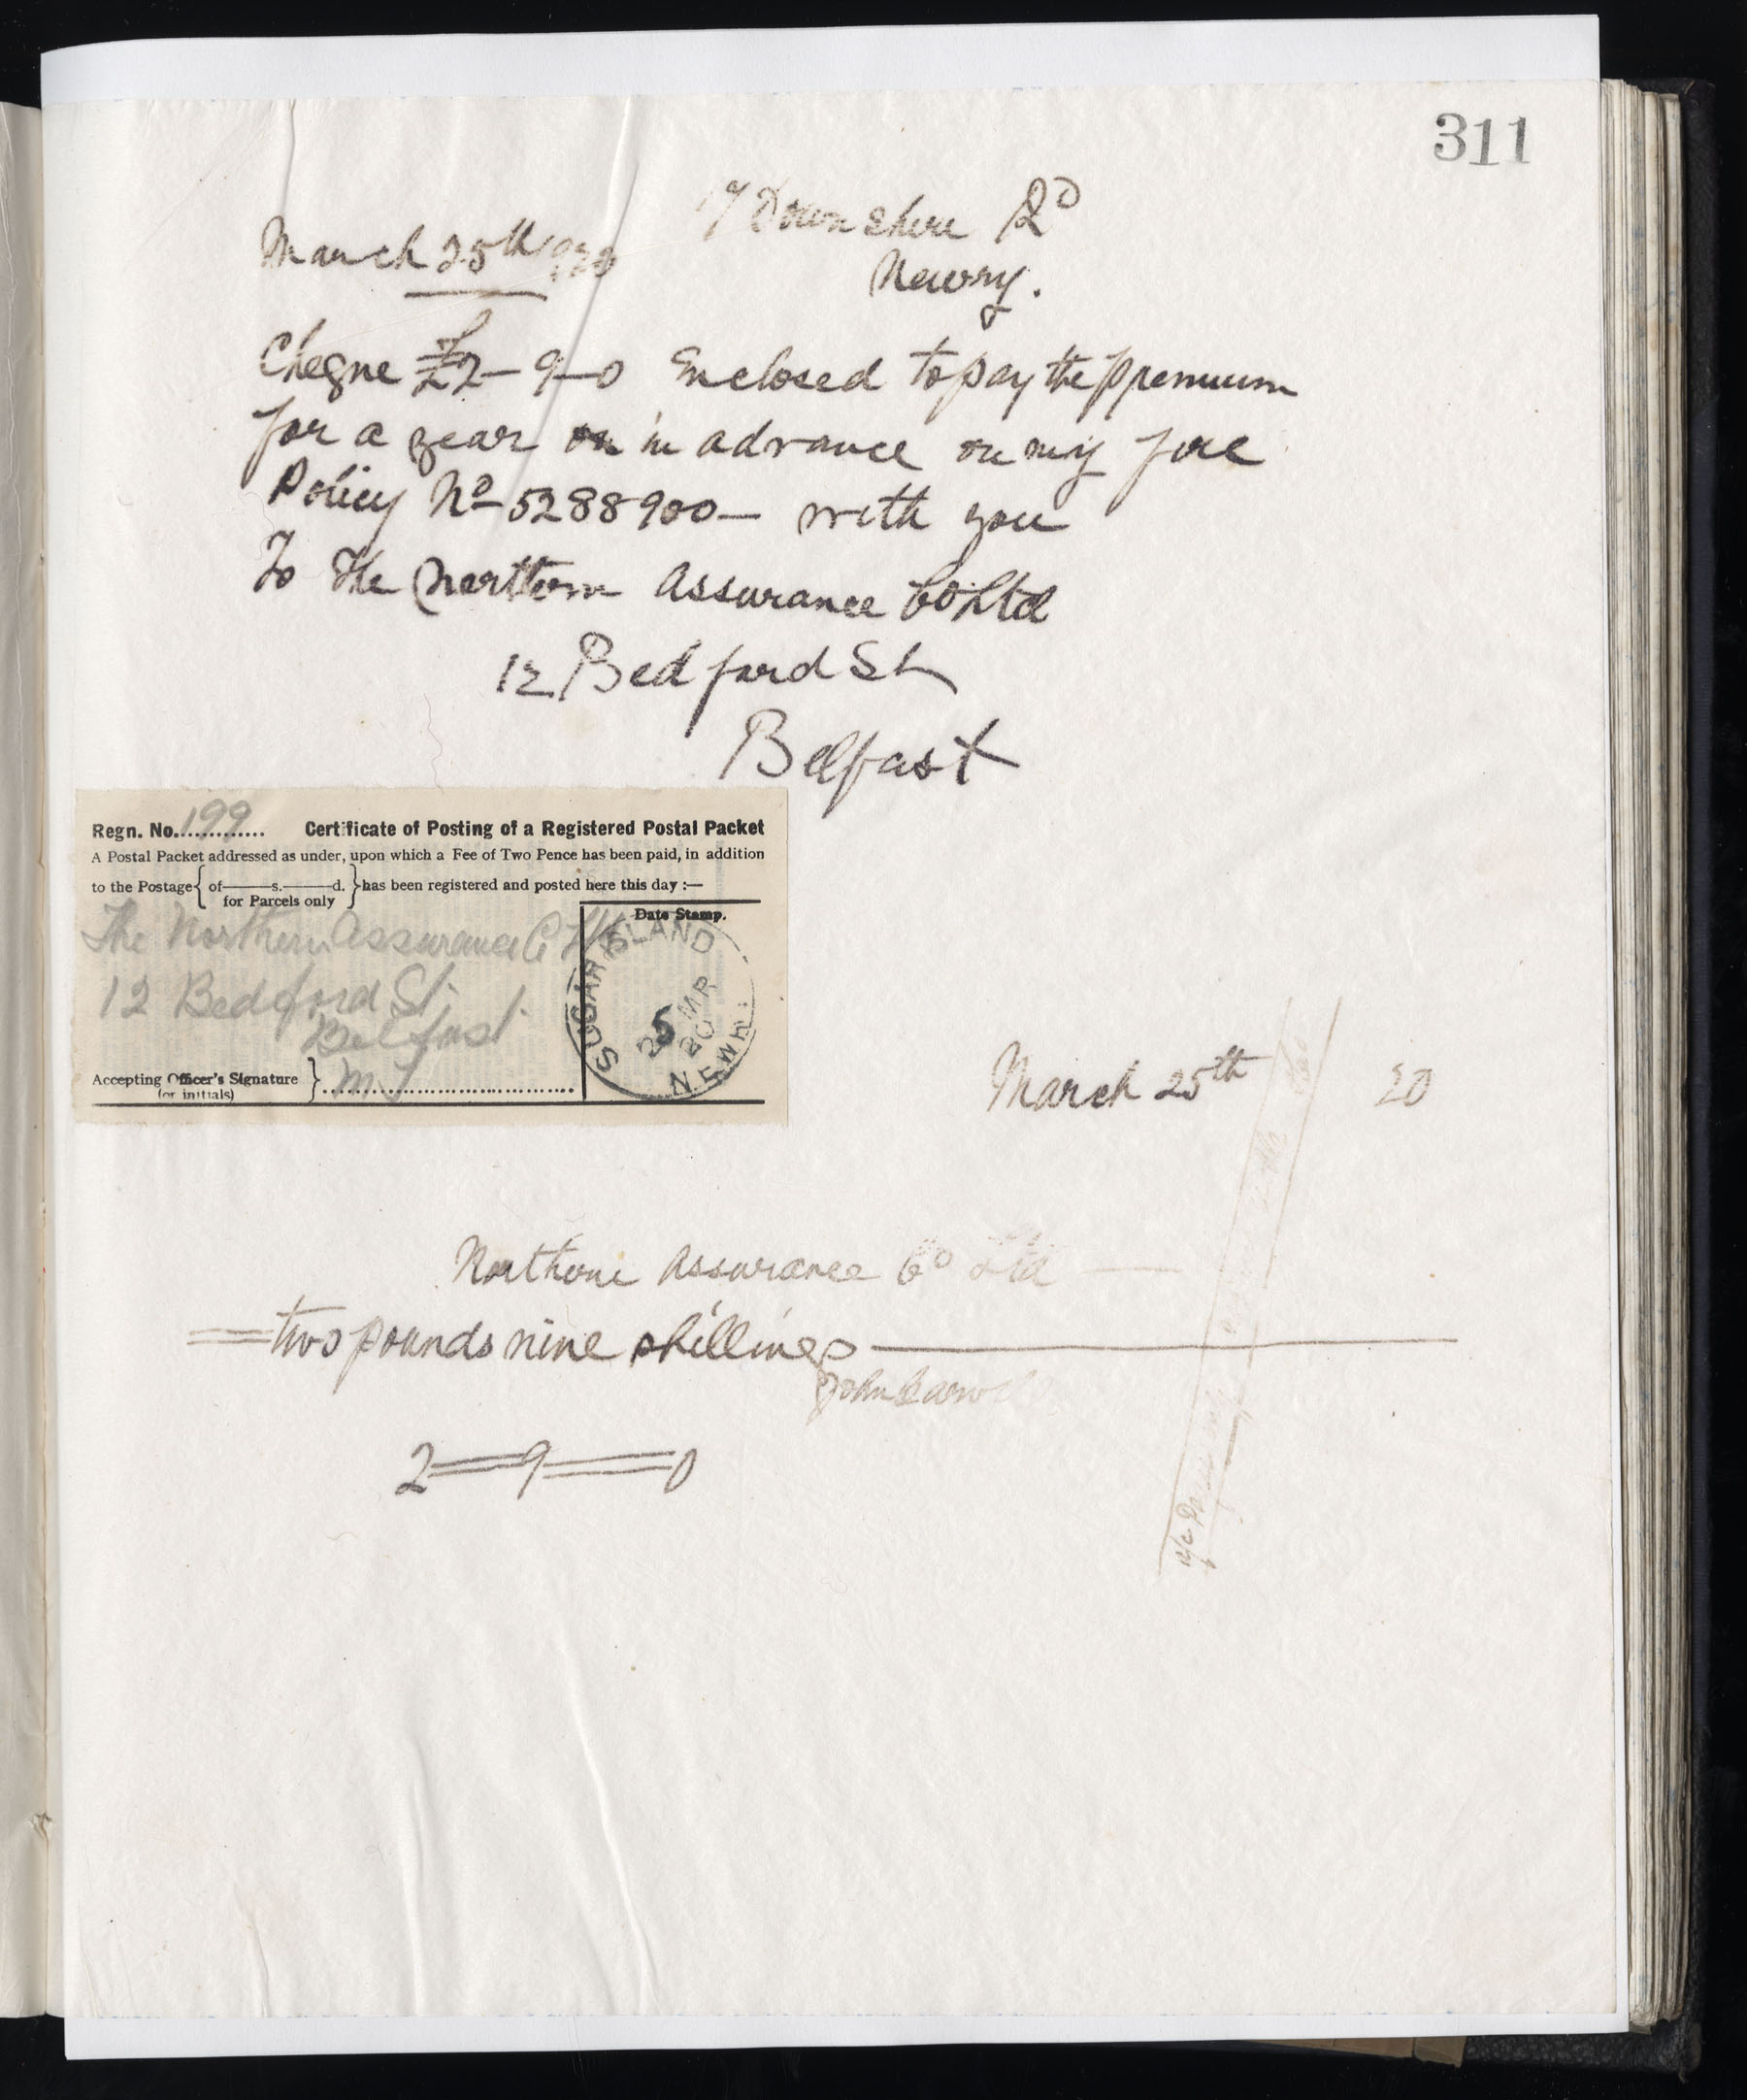 311
17 Downshire Rd
March 25th 1920
Newry.
Cheque £2-9-0 Enclosed to pay the premium
for a year in advance on my fire
Policy No 5288900- with you
To The Northern Assurance Co Ltd
12 Bedford St
Belfast
Regn. No. 199 Certificate of Posting of a Registered Postal Packet
A Postal Packet addressed as under, upon which a Fee of Two Pence has been paid, in addition
to the Postage { of s. d. for Parcels only } has been registered and posted here this day :—
Date Stamp.
The Northern Assurance Co Ltd
12 Bedford St.
Belfast
Accepting Officer's Signature (or initials) } M J
SUGAR ISLAND
25 MR
20
NEWRY
March 25th 20
Northern Assurance Co Ltd
two pounds nine shillings
John
2=9=0
a/c